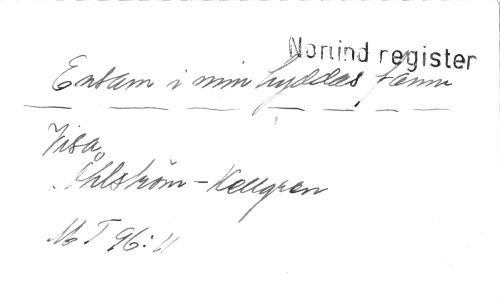 Norlind register
Ensam i min hyddas famn
Visa
Åhlström-Kellgren
MT 96:11